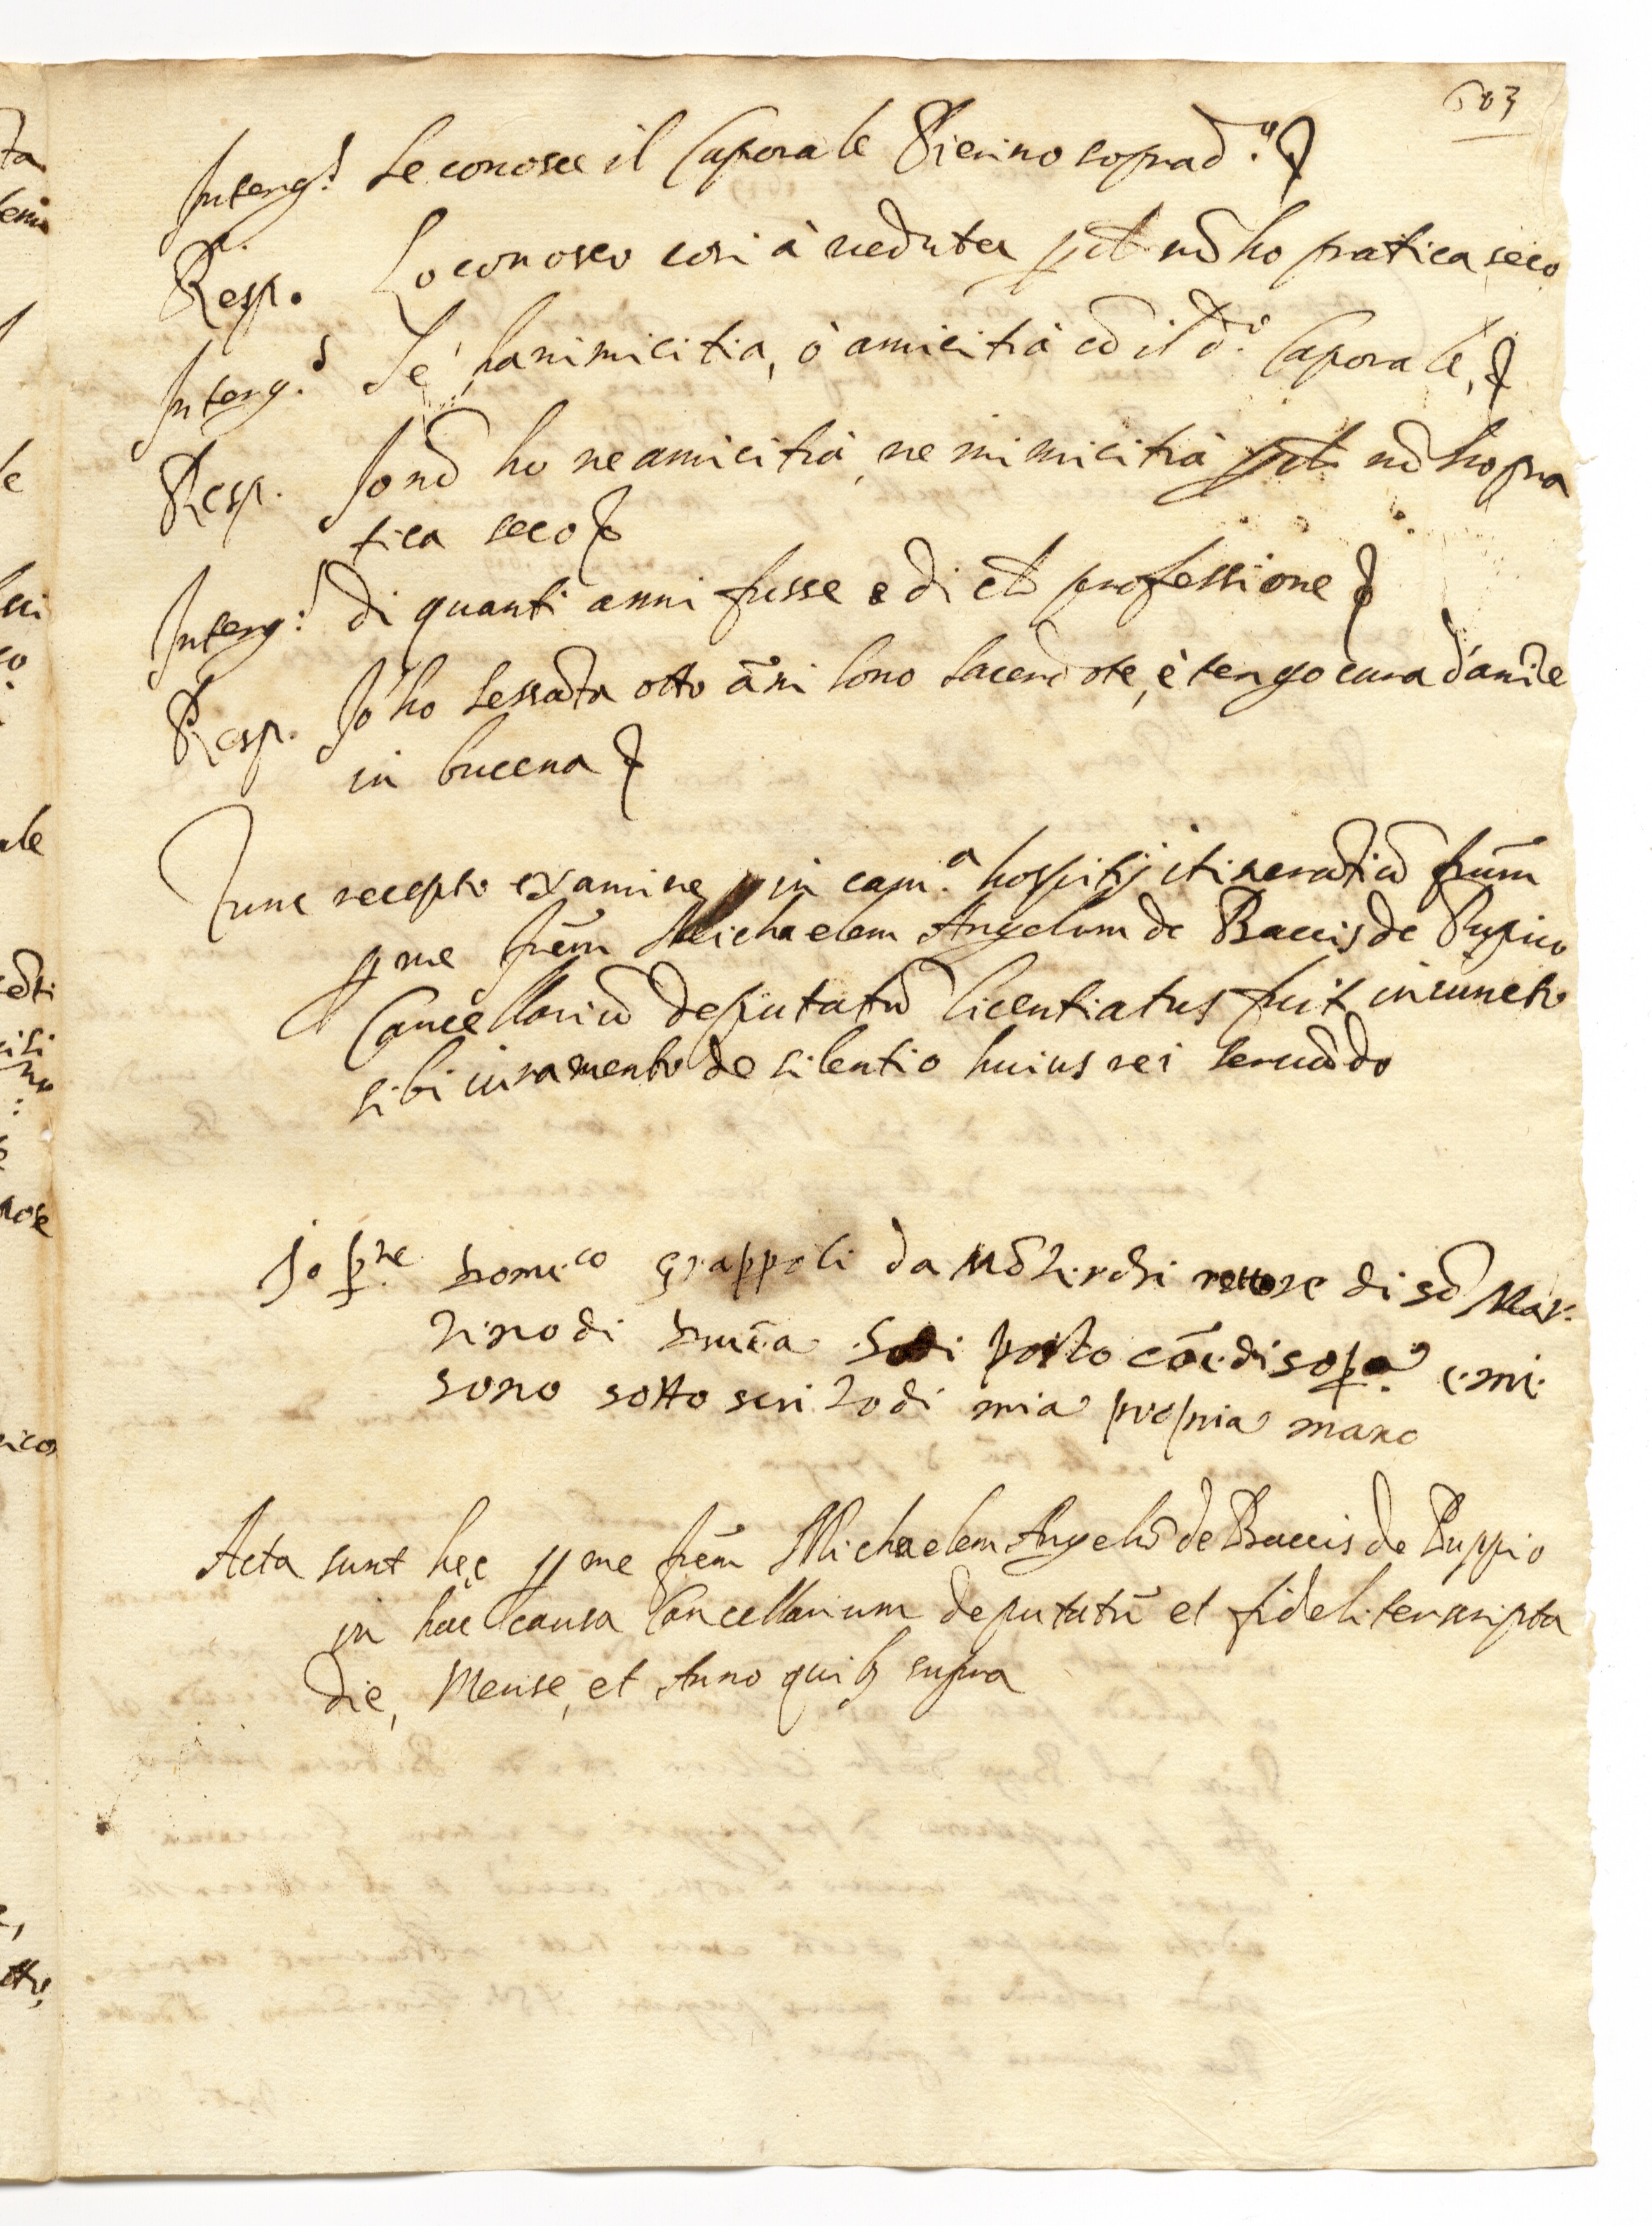 503
Interg.s Se conosce il Caporale Pierino soprad.o
Resp. Lo conosco cosi à veduta pche nō ho pratica seco
Interg.s Se ha nimicitia, ò amicitia cō il d.o Caporale,
Resp. Io nō ho ne amicitia, ne inimicitia pche nō ho pra
tica seco
Interg.s di quanti anni fusse e di che professione
Resp. Io ho sessāta otto āni sono sacerdote, è tengo cura d'anīe
in bucena
Tunc recepto examine in cam.a hospitij itinerātiū frūm
p me frēm Michaelem Angelum de Baccis de Pupio
Cancellariū deputatū licentiatus fuit iniuncto
sibi iuramento de silentio huius rei servādo
Io p.re domico grappoli da mōterchi rettore di sō Mar
tino di bucēa ho di posto cōe di sopa e mi
sono sotto scrito di mia propria mano
Acta sunt hęc p me frēm Michaelem Angelū de Baccis de Puppio
in hac causa Cancellarium deputatū et fideliter scripta
die, Mense, et Anno quib supra